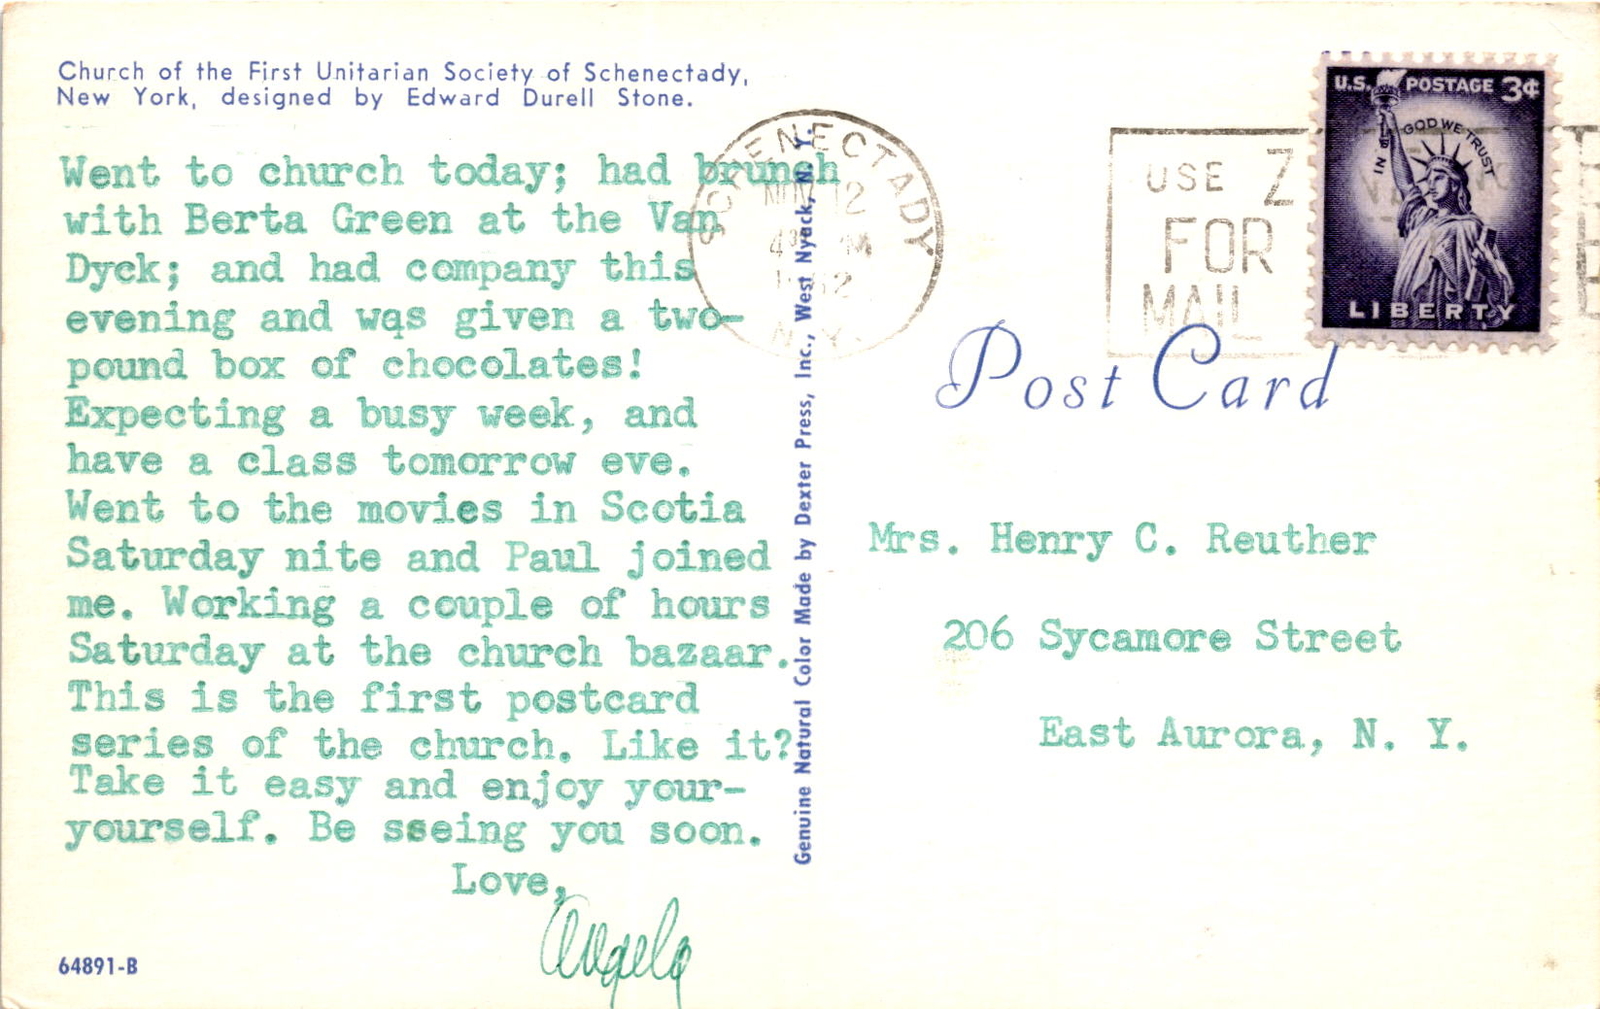 Church of the First Unitarian Society of Schenectady,
New York, designed by Edward Durell Stone.
Went to church today; had brunch
with Berta Green at the Van
Dyck; and had company this
evening and wqs given a two-
pound box of chocolates!
Expecting a busy week, and
have a class tomorrow eve.
Went to the movies in Scotia
Saturday nite and Paul joined
me. Working a couple of hours
Saturday at the church bazaar.
This is the first postcard
series of the church. Like it?
Take it easy and enjoy your-
yourself. Be sseing you soon.
Love,
Angela
64891-B
Genuine Natural Color Made by Dexter Press, Inc., West Nyack, N. Y.
SCHENECTADY
12
N.Y.
USE
FOR
MAIL
U.S. POSTAGE 3¢
IN GOD WE TRUST
LIBERTY
Post Card
Mrs. Henry C. Reuther
206 Sycamore Street
East Aurora, N. Y.